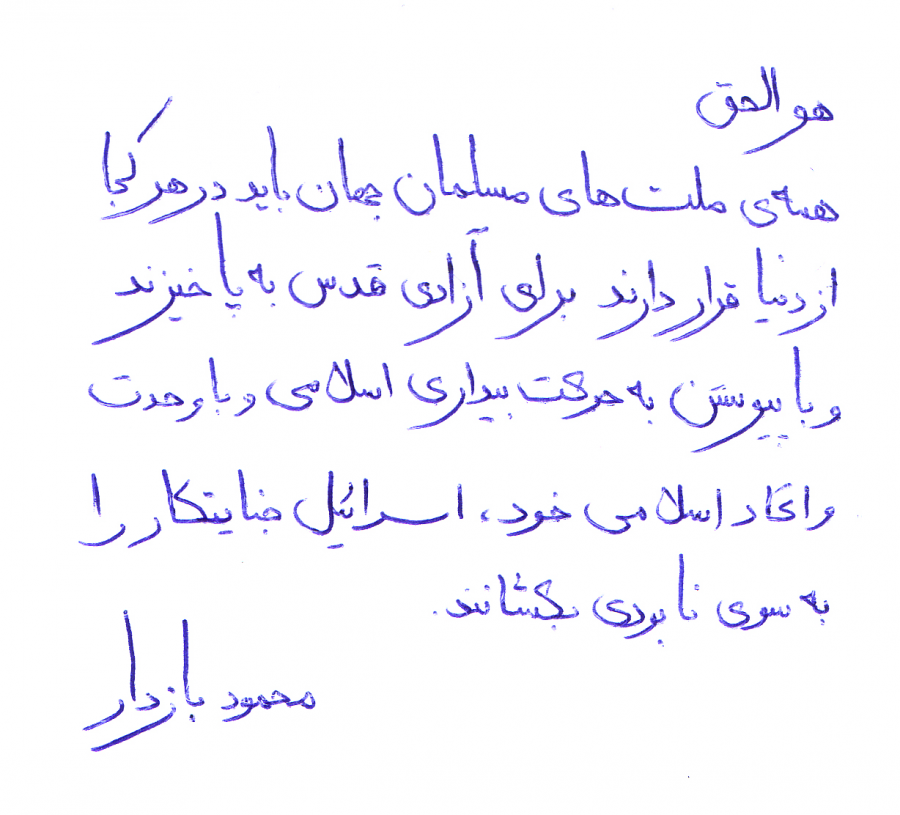 هو الحق
همه‌ی ملت‌های مسلمان جهان باید در هر کجا
از دنیا قرار دارند برای آزادی قدس به پا خیزند
و با پیوستن به حرکت بیداری اسلامی و با وحدت
و اتحاد اسلامی خود، اسرائیل جنایتکار را
به سوی نابودی بکشانند.
محمود بازدار